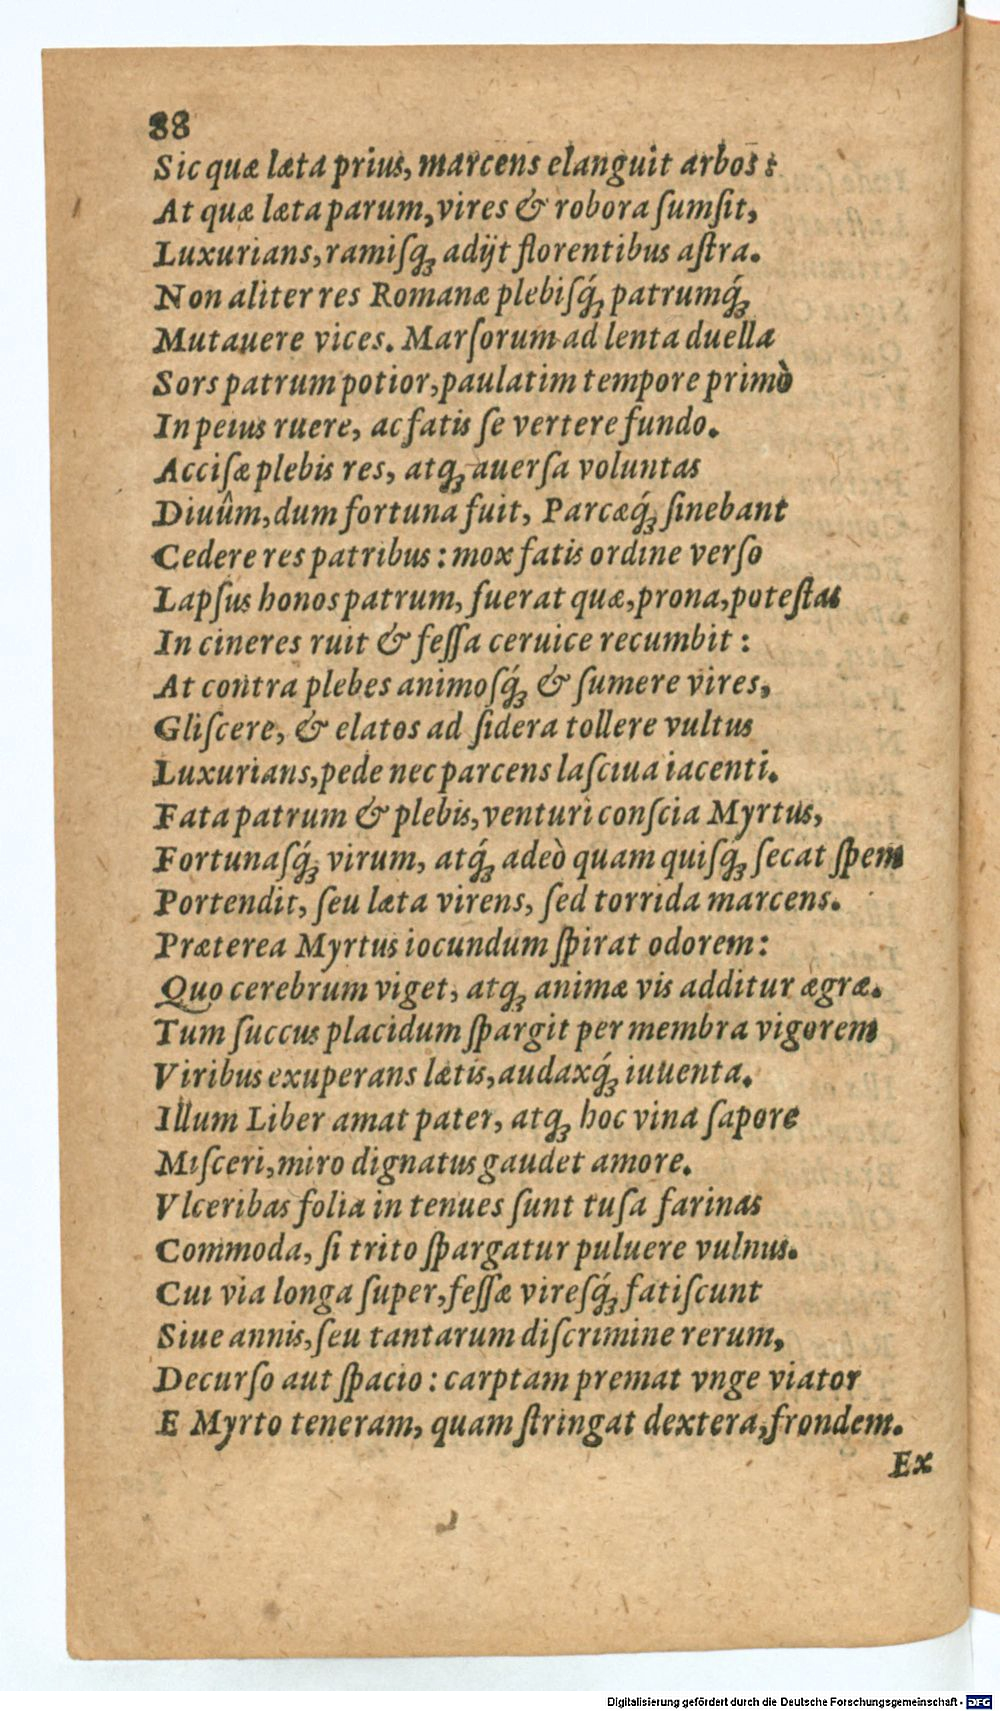 88
Sic quæ læta prius, marcens elanguit arbos:
At quæ læta parum, vires & robora ſumſit,
Luxurians, ramiſq́ꝫ adijt florentibus aſtra.
Non aliter res Romanæ plebiſq́ꝫ patrumq́ꝫ
Mutauere vices. Marſorum ad lenta duella
Sors patrum potior, paulatim tempore primò
In peius ruere, ac fatis ſe vertere fundo.
Acciſæ plebis res, atqꝫ auerſa voluntas
Diuûm, dum fortuna fuit, Parcæq́ꝫ ſinebant
Cedere res patribus: mox fatis ordine verſo
Lapſus honos patrum, fuerat quæ, prona, poteſtas
In cineres ruit & feſſa ceruice recumbit:
At contra plebes animoſq́ꝫ & ſumere vires,
Gliſcere, & elatos ad ſidera tollere vultus
Luxurians, pede nec parcens laſciua iacenti.
Fata patrum & plebis, venturi conſcia Myrtus,
Fortunaſq́ꝫ virum, atq́ꝫ adeò quam quiſq́ꝫ ſecat ſpem
Portendit, ſeu læta virens, ſed torrida marcens.
Præterea Myrtus iocundum ſpirat odorem:
Quo cerebrum viget, atqꝫ animæ vis additur ægræ.
Tum ſuccus placidum ſpargit per membra vigorem
Viribus exuperans lætis, audaxq́ꝫ iuuenta.
Illum Liber amat pater, atqꝫ hoc vina ſapore
Miſceri, miro dignatus gaudet amore.
Vlceribas folia in tenues ſunt tuſa farinas
Commoda, ſi trito ſpargatur puluere vulnus.
Cui via longa ſuper, feſſæ vireſq́ꝫ fatiſcunt
Siue annis, ſeu tantarum diſcrimine rerum,
Decurſo aut ſpacio: carptam premat vnge viator
E Myrto teneram, quam ſtringat dextera, frondem.
Ex
Digitalisierung gefördert durch die Deutsche Forschungsgemeinschaft - DFG